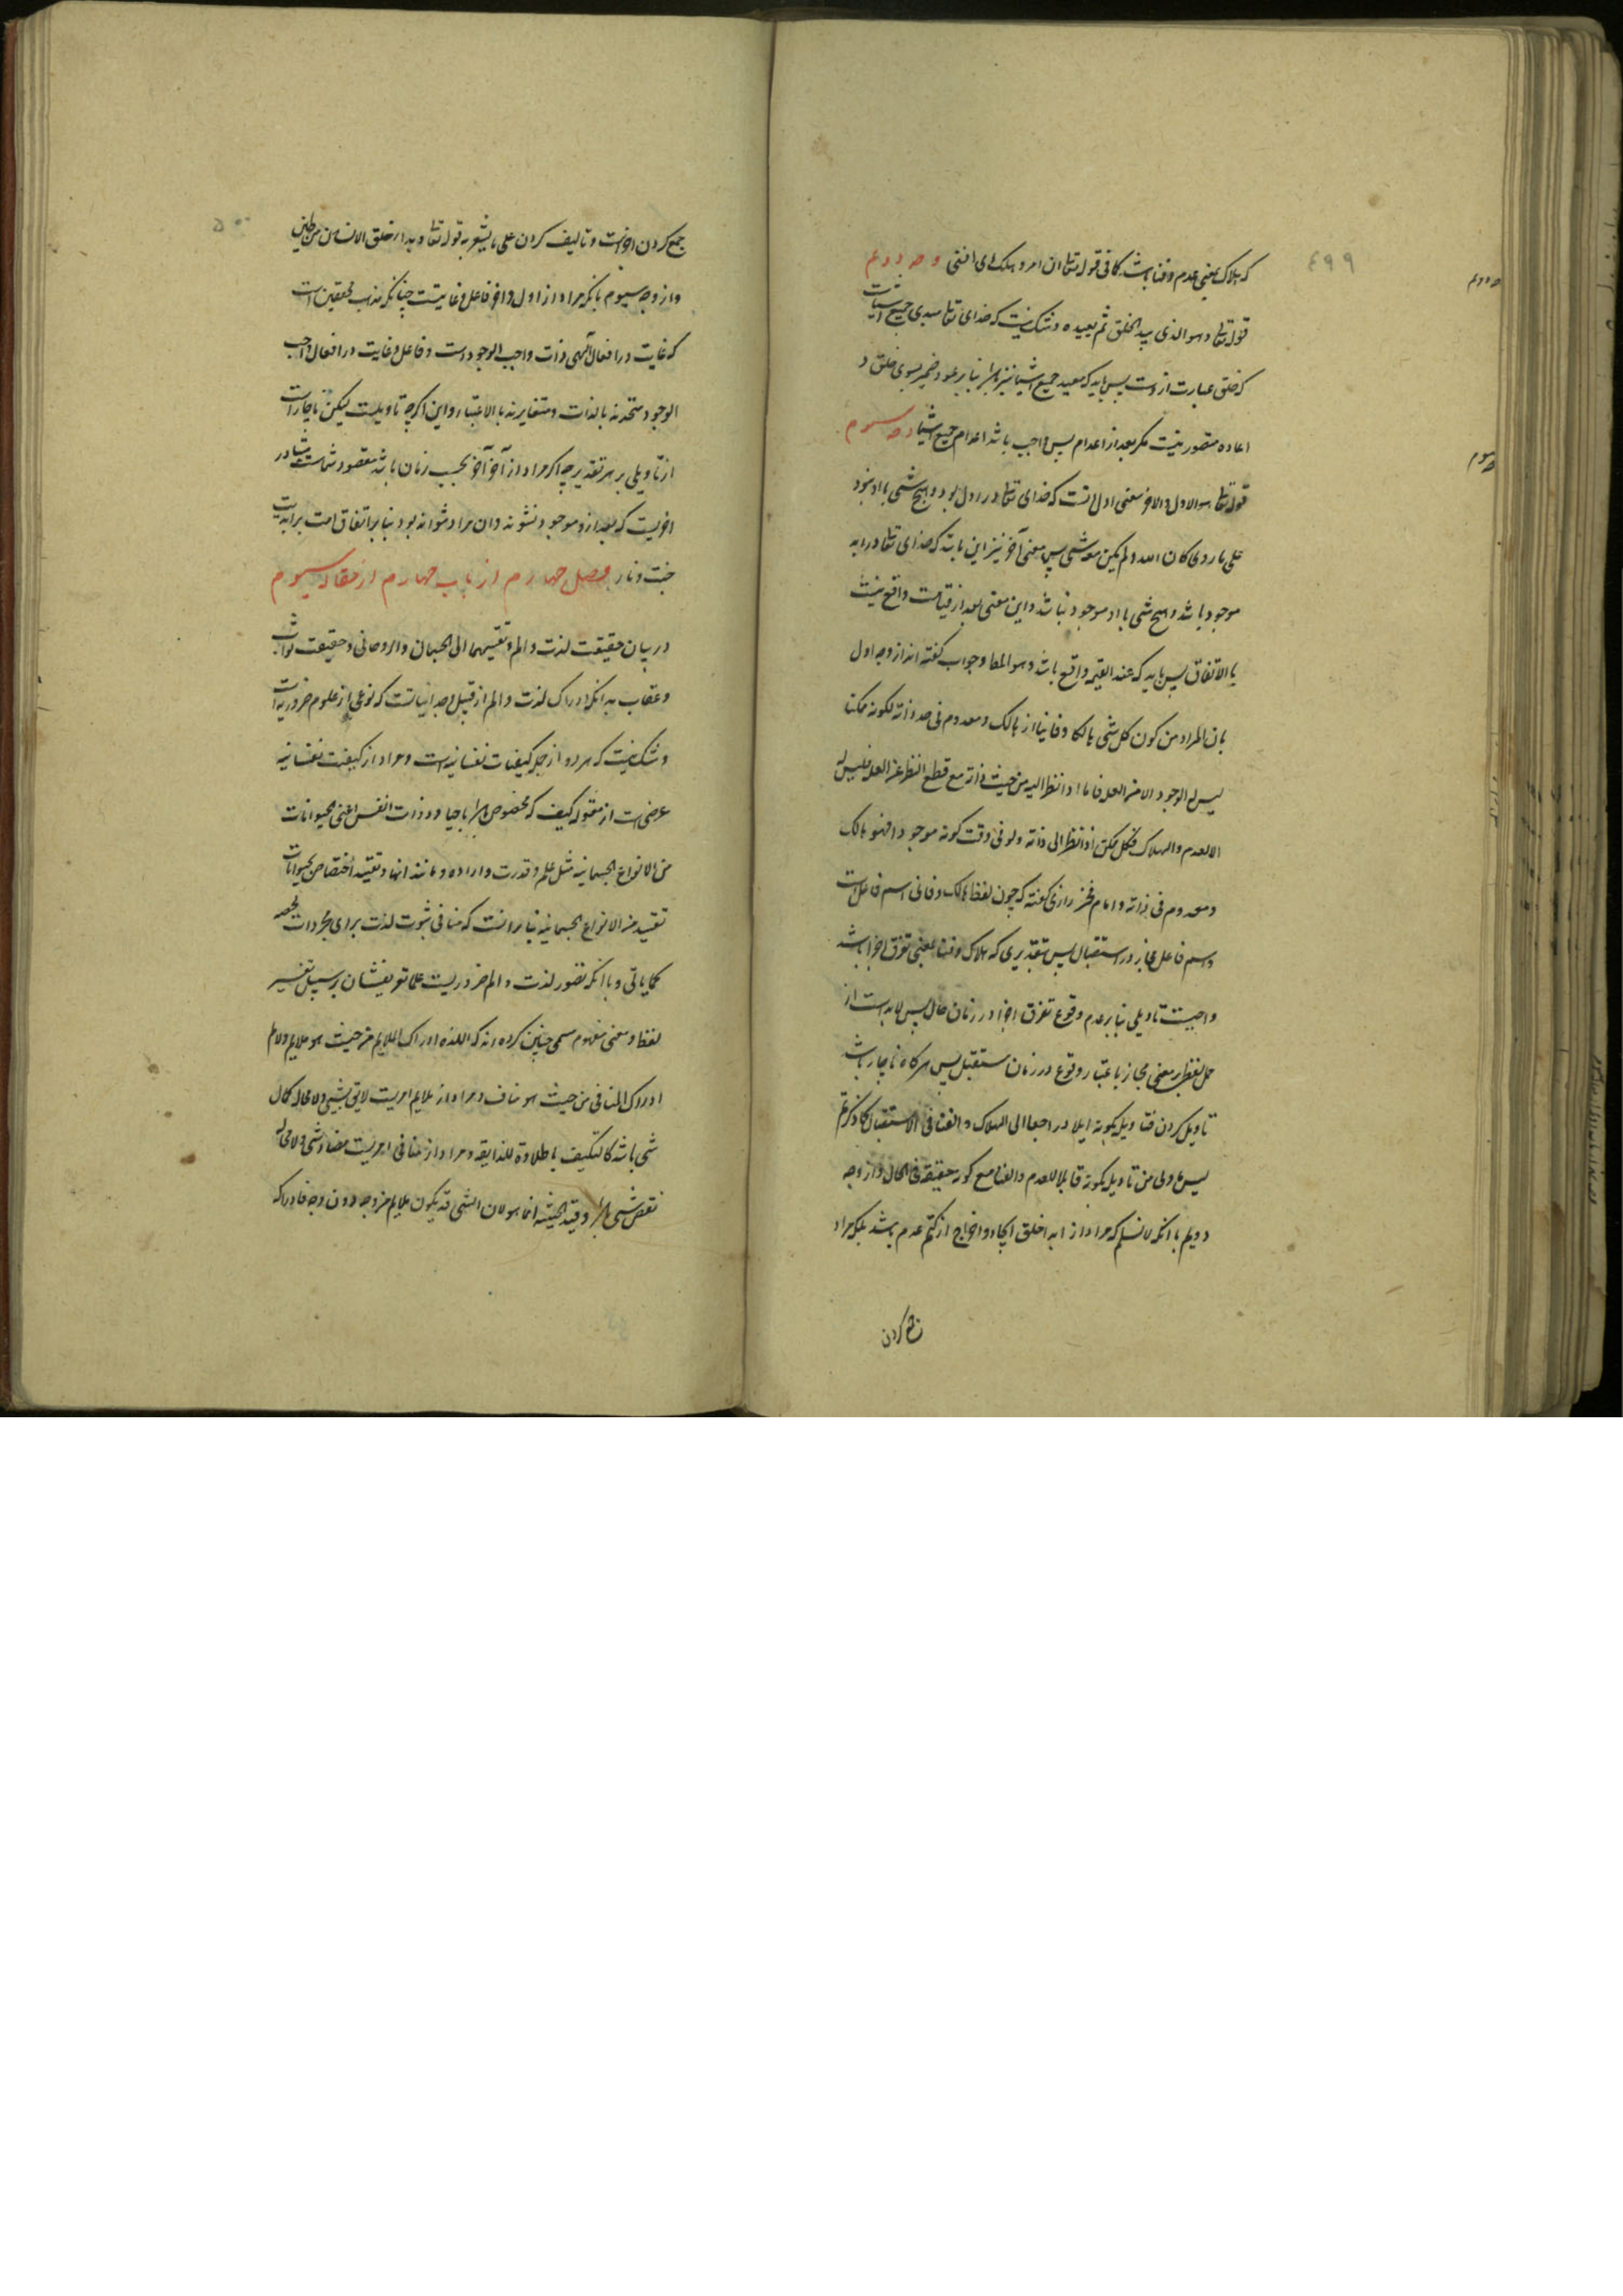 ٤٩٩
که هلاک بمعنی عدم و فنا باشد کما فی قوله تعالی ان امرو هلک ای افنی وجه دویم
قوله تعالی و هو الذی یبدا الخلق ثم یعیده و شک نیست که خدای تعالی مبدی جمیع اشیاست
که خلق عبارت ازوست پس باید که معید جمیع اشیا نیز باشد بنا بر عود ضمیر بسوی خلق و
اعاده متصور نیست مکر بعد از اعدام پس واجب باشد اعدام جمیع اشیا وجه سیوم
قوله تعالی هو الاول و الاخر معنی اول انست که خدای تعالی در ازل بود و هیچ شی با او نبود
علی ما روی کان الله و لم یکن معه شی پس معنی آخر نیز این باشد که خدای تعالی در ابد
موجود باشد و هیچ شی با او موجود نباشد و این معنی بعد از قیامت واقع نیست
بالاتفاق پس باید که عند القیمه واقع باشد و هو المط و جواب کفته اند از وجه اول
بان المراد من کون کل شی هالکا و فانیا انه هالک و معدوم فی حد ذاته لکونه ممکنا
لیس له الوجود الا من العله فاما اذا نظر الیه من حیث ذاته مع قطع النظر عن العله فلیس له
الا العدم و الهلاک فکل ممکن اذا نظر الی ذاته و لو فی وقت کونه موجودا فهو هالک
و معدوم فی ذاته و امام فخر رازی کفته که چون لفظ هالک و فانی اسم فاعل است
و اسم فاعل مجاز در استقبال پس بتقدیری که هلاک و فنا بمعنی تفرق اجزا باشد
واجبست تاویلی بنا بر عدم وقوع تفرق اجزا در زمان حال پس لابد است از
حمل لفظ بر معنی مجاز باعتبار وقوع در زمان مستقبل پس هرکاه ناچار باشد
تاویل کردن فتاویله بکونه ایلا و راجعا الی الهلاک و الفنا فی الاستقبال کما ذکرتم
لیس باولی من تاویله بکونه قابلا للعدم و الفنا مع کونه حقیقة فی الحال و از وجه
دویم بانکه لانسلم که مراد از ابدا خلق ایجاد و اخراج از کتم عدم باشد بلکه مراد
جمع کردن
وجه دویم
وجه سیوم
٥٠٠
جمع کردن اجزاست و تالیف کردن علی ما یشعر به قوله تعالی و بدا خلق الانسان من طین
و از وجه سیوم بانکه مراد از اول و اخر فاعل و غایتست چنانکه مذهب محققین است
که غایت در افعال الهی ذات واجب الوجود است و فاعل و غایت در افعال واجب
الوجود متحدند بالذات و متغایرند بالاعتبار و این اکرچه تاویلست لیکن ناچار است
از تاویلی بر هر تقدیر چه اکر مراد از آخر آخر بحسب زمان باشد مقصود شماست متبادر
اخریست که بعد ازو موجود نشوند و ان مراد نتواند بود بنا بر اتفاق امت بر ابدیت
جنت و نار فصل چهارم از باب چهارم از مقاله سیوم
در بیان حقیقت لذت و الم و تقسیمهما الی الجسمانی و الروحانی و حقیقت ثواب
و عقاب بدانکه ادراک لذت و الم از قبیل وجدانیاتست که نوعی از علوم ضروریه است
و شک نیست که هر دو از جمله کیفیات نفسانیه است و مراد از کیفیت نفسانیه
عرضی است از مقوله کیف که مخصوص باشد باحیا و ذوات انفس اعنی الحیوانات
من الانواع الجسمانیه مثل علم و قدرت و اراده و مانند انها و تقیید اختصاص بحیوانات
تقیید من الانواع الجسمانیه بنا برانست که منافی ثبوت لذت برای مجردات محضه
کما یاتی و با انکه تصور لذت و الم ضروریست علما تعریفشان بر سبیل تفسیر
لفظ و معنی مفهوم مسمی چنین کرده اند که اللذه ادراک الملایم من حیث هو ملایم و الالم
ادراک المنافی من حیث هو مناف و مراد از ملایم امریست لایق بشی و لا محاله کمال
شی باشد کالتکیف بالحلاوة للذایقه و مراد از منافی امریست مضاد شی و لا محاله
نقص شی باشد و قید الحیثیه انما هو لان الشی قد یکون ملایما من وجه دون وجه فادراکه